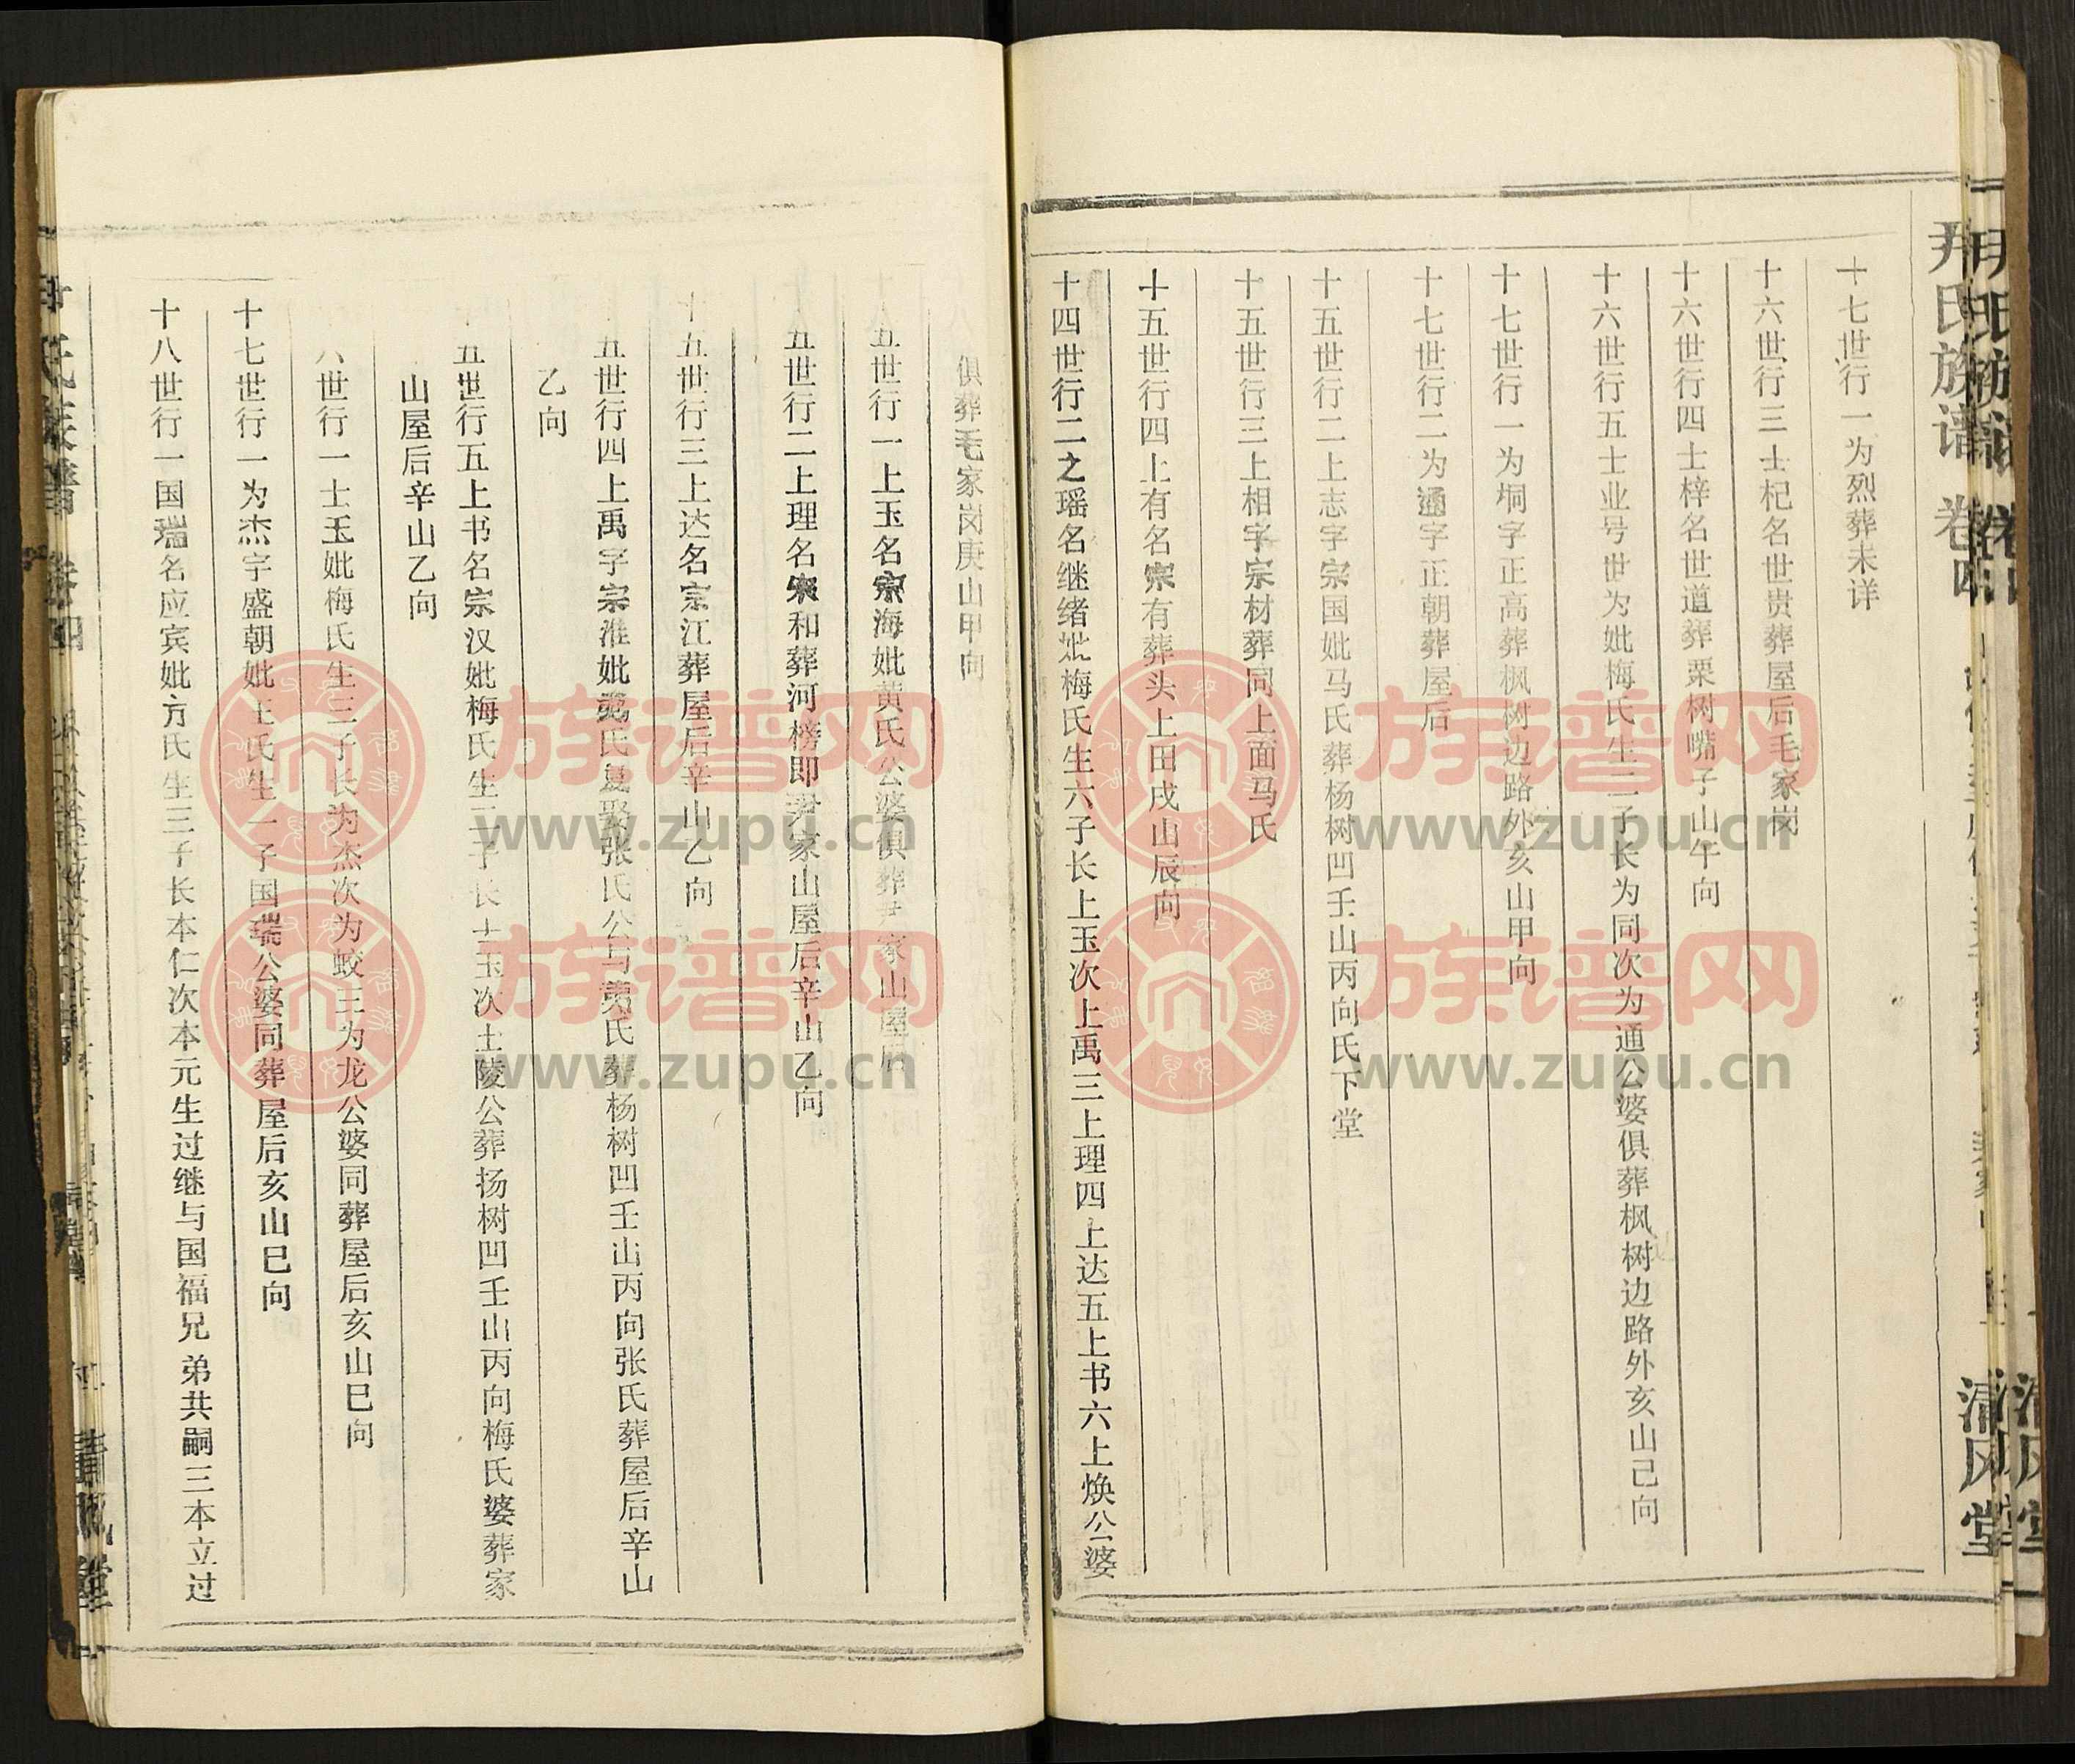 尹氏族谱 卷四
清风堂
十七世行一为烈葬未详
十六世行三士杞名世贵葬屋后毛家岗
十六世行四士梓名世道葬栗树嘴子山午向
十六世行五士业号世为妣梅氏生二子长为同次为通公婆俱葬枫树边路外亥山己向
十七世行一为垌字正高葬枫树边路外亥山甲向
十七世行二为通字正朝葬屋后
十五世行二上志字宗国妣马氏葬杨树凹壬山丙向氏下堂
十五世行三上相字宗材葬同上面马氏
十五世行四上有名宗有葬头上田戌山辰向
十四世行二之瑶名继绪妣梅氏生六子长上玉次上禹三上理四上达五上书六上焕公婆
俱葬毛家岗庚山甲向
五世行一上玉名宗海妣黄氏公婆俱葬尹家山屋后
五世行二上理名宗和葬河榜即尹家山屋后辛山乙向
十五世行三上达名宗江葬屋后辛山乙向
五世行四上禹字宗淮妣氏复娶张氏公与氏葬杨树凹壬山丙向张氏葬屋后辛山
乙向
五世行五上书名宗汉妣梅氏生二子长士玉次士陵公葬扬树凹壬山丙向梅氏婆葬家
山屋后辛山乙向
六世行一士玉妣梅氏生三子长为杰次为蛟三为龙公婆同葬屋后亥山巳向
十七世行一为杰字盛朝妣王氏生一子国瑞公婆同葬屋后亥山巳向
十八世行一国瑞名应宾妣方氏生三子长本仁次本元生过继与国福兄弟共嗣三本立过
族谱网
www.zupu.cn
族谱网
www.zupu.cn
族谱网
www.zupu.cn
族谱网
www.zupu.cn